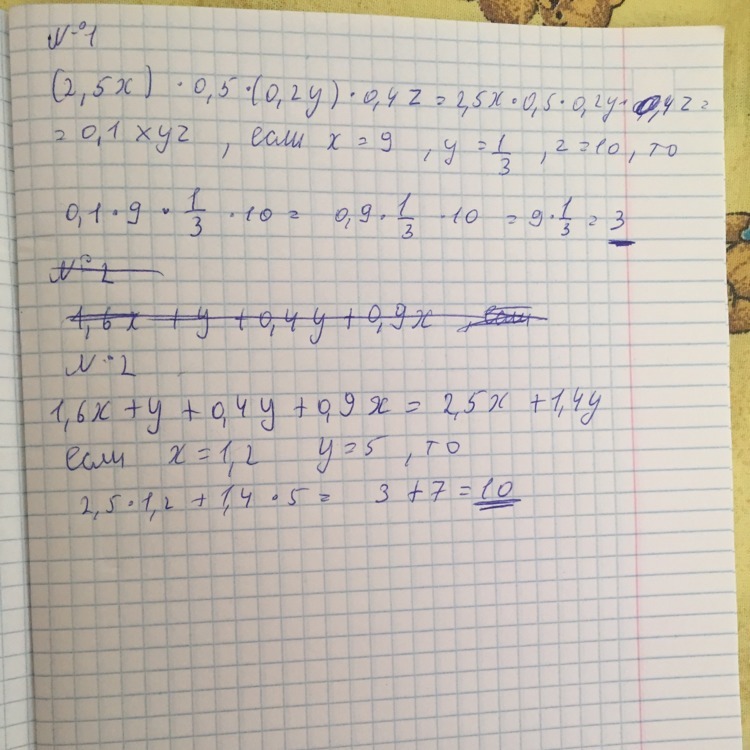 №1
(2,5x) · 0,5 · (0,2y) · 0,4z = 2,5x · 0,5 · 0,2y · 0,4z =
= 0,1 xyz , если x = 9 , y = 1/3 , z = 10 , то
0,1 · 9 · 1/3 · 10 = 0,9 · 1/3 · 10 = 9 · 1/3 = 3
№2
1,6x + y + 0,4y + 0,9x , если
№2
1,6x + y + 0,4y + 0,9x = 2,5x + 1,4y
если x = 1,2 y = 5 , то
2,5 · 1,2 + 1,4 · 5 = 3 + 7 = 10